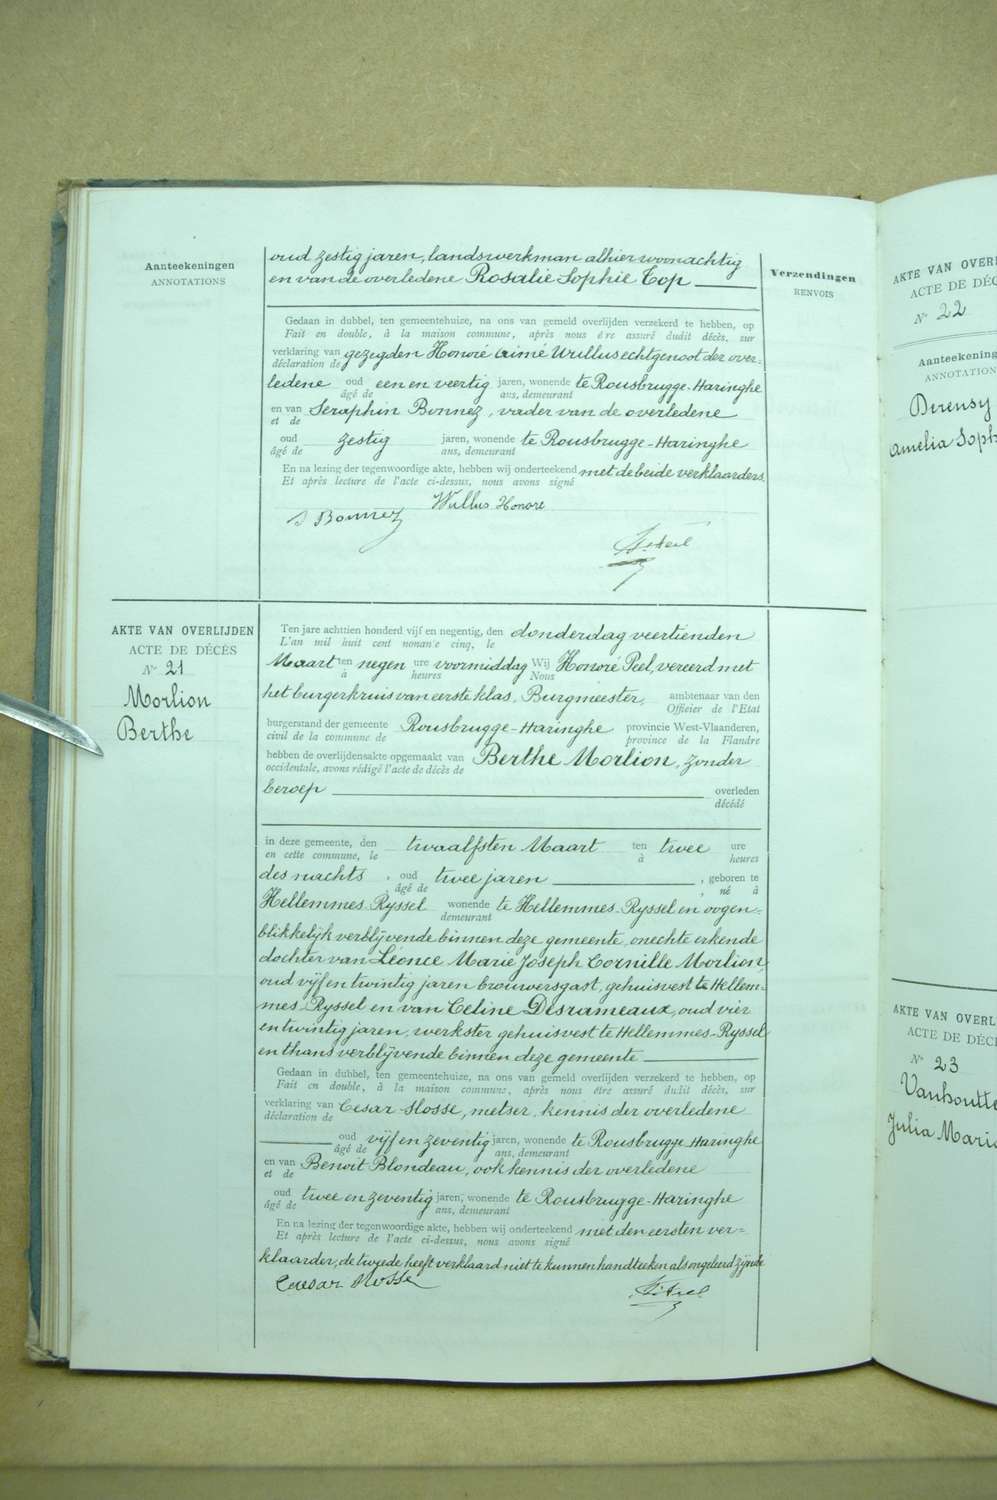 Aanteekeningen
ANNOTATIONS
Verzendingen
RENVOIS
oud zestig jaren, landswerkman alhier woonachtig
en van de overledene Rosalie Sophie Top
Gedaan in dubbel, ten gemeentehuize, na ons van gemeld overlijden verzekerd te hebben, op
Fait en double, à la maison commune, après nous être assuré dudit décès, sur
verklaring van gezegden Honoré Aimé Wullus echtgenoot der over-
déclaration de
ledene oud een en veertig jaren, wonende te Rousbrugge-Haringhe
âgé de ans, demeurant
en van Seraphin Bonnez, vader van de overledene
et de
oud zestig jaren, wonende te Rousbrugge-Haringhe
âgé de ans, demeurant
En na lezing der tegenwoordige akte, hebben wij onderteekend met de beide verklaarders.
Et après lecture de l'acte ci-dessus, nous avons signé
Wullus Honore
S Bonnez
AKTE VAN OVERLIJDEN
ACTE DE DÉCÈS
N° 21
Morlion
Berthe
Ten jare achttien honderd vijf en negentig, den donderdag veertienden
L'an mil huit cent nonante cinq, le
Maart ten negen ure voormiddag Wij Honoré Peel, vereerd met
à heures Nous
het burgerkruis van eerste klas, Burgmeester, ambtenaar van den
Officier de l'Etat
burgerstand der gemeente Rousbrugge-Haringhe provincie West-Vlaanderen,
civil de la commune de province de la Flandre
hebben de overlijdensakte opgemaakt van Berthe Morlion, zonder
occidentale, avons rédigé l'acte de décès de
beroep overleden
décédé
in deze gemeente, den twaalfsten Maart ten twee ure
en cette commune, le à heures
des nachts, oud twee jaren, geboren te
âgé de, né à
Hellemmes-Ryssel wonende te Hellemmes-Ryssel en oogen-
demeurant
blikkelijk verblijvende binnen deze gemeente, onechte erkende
dochter van Léonce Marie Joseph Cornille Morlion,
oud vijf en twintig jaren brouwersgast, gehuisvest te Hellem-
mes-Ryssel en van Celine Desrameaux, oud vier
en twintig jaren, werkster gehuisvest te Hellemmes-Ryssel
en thans verblijvende binnen deze gemeente
Gedaan in dubbel, ten gemeentehuize, na ons van gemeld overlijden verzekerd te hebben, op
Fait en double, à la maison commune, après nous être assuré dudit décès, sur
verklaring van Cesar Mosse, metser, kennis der overledene
déclaration de
oud vijf en zeventig jaren, wonende te Rousbrugge-Haringhe
âgé de ans, demeurant
en van Benoit Blondeau, ook kennis der overledene
et de
oud twee en zeventig jaren, wonende te Rousbrugge-Haringhe
âgé de ans, demeurant
En na lezing der tegenwoordige akte, hebben wij onderteekend met den eersten ver-
Et après lecture de l'acte ci-dessus, nous avons signé
klaarder, de tweede heeft verklaard niet te kunnen handteeken als ongeleerd zijnde
Caesar Mosse
AKTE VAN OVERL
ACTE DE DÉC
N° 22
Aanteekening
ANNOTATION
Derensy
Amelia Soph
AKTE VAN OVERL
ACTE DE DÉC
N° 23
Vanhoutte
Julia Maria